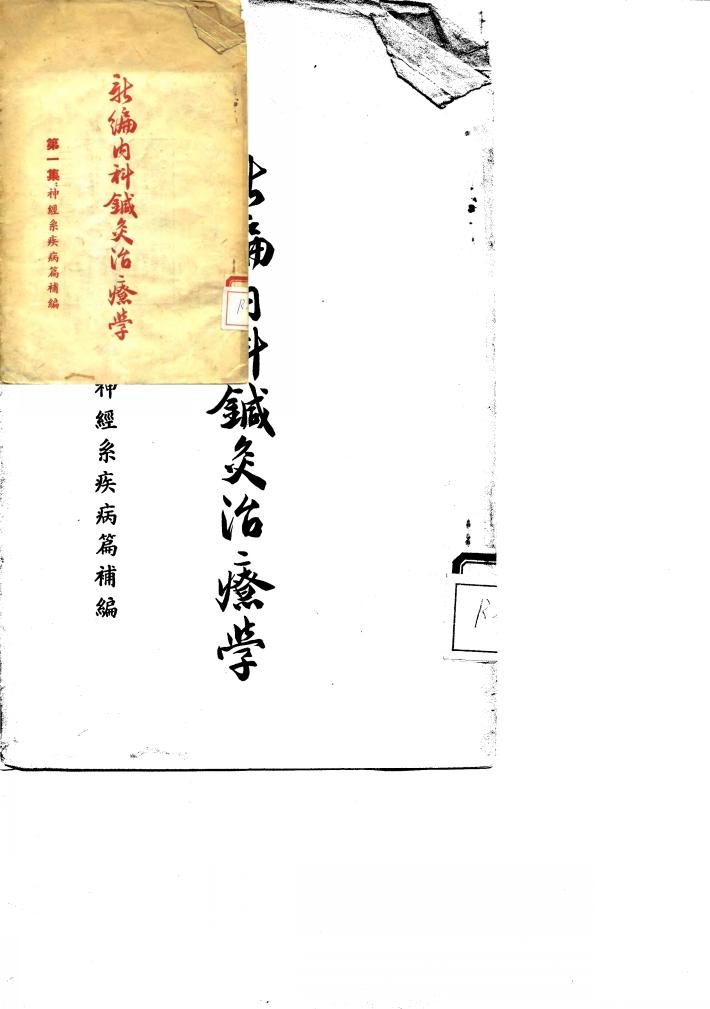 新編內科鍼灸治療學
第一集:神經系疾病篇補編
R
編內科鍼灸治療學
神經系疾病篇補編
R